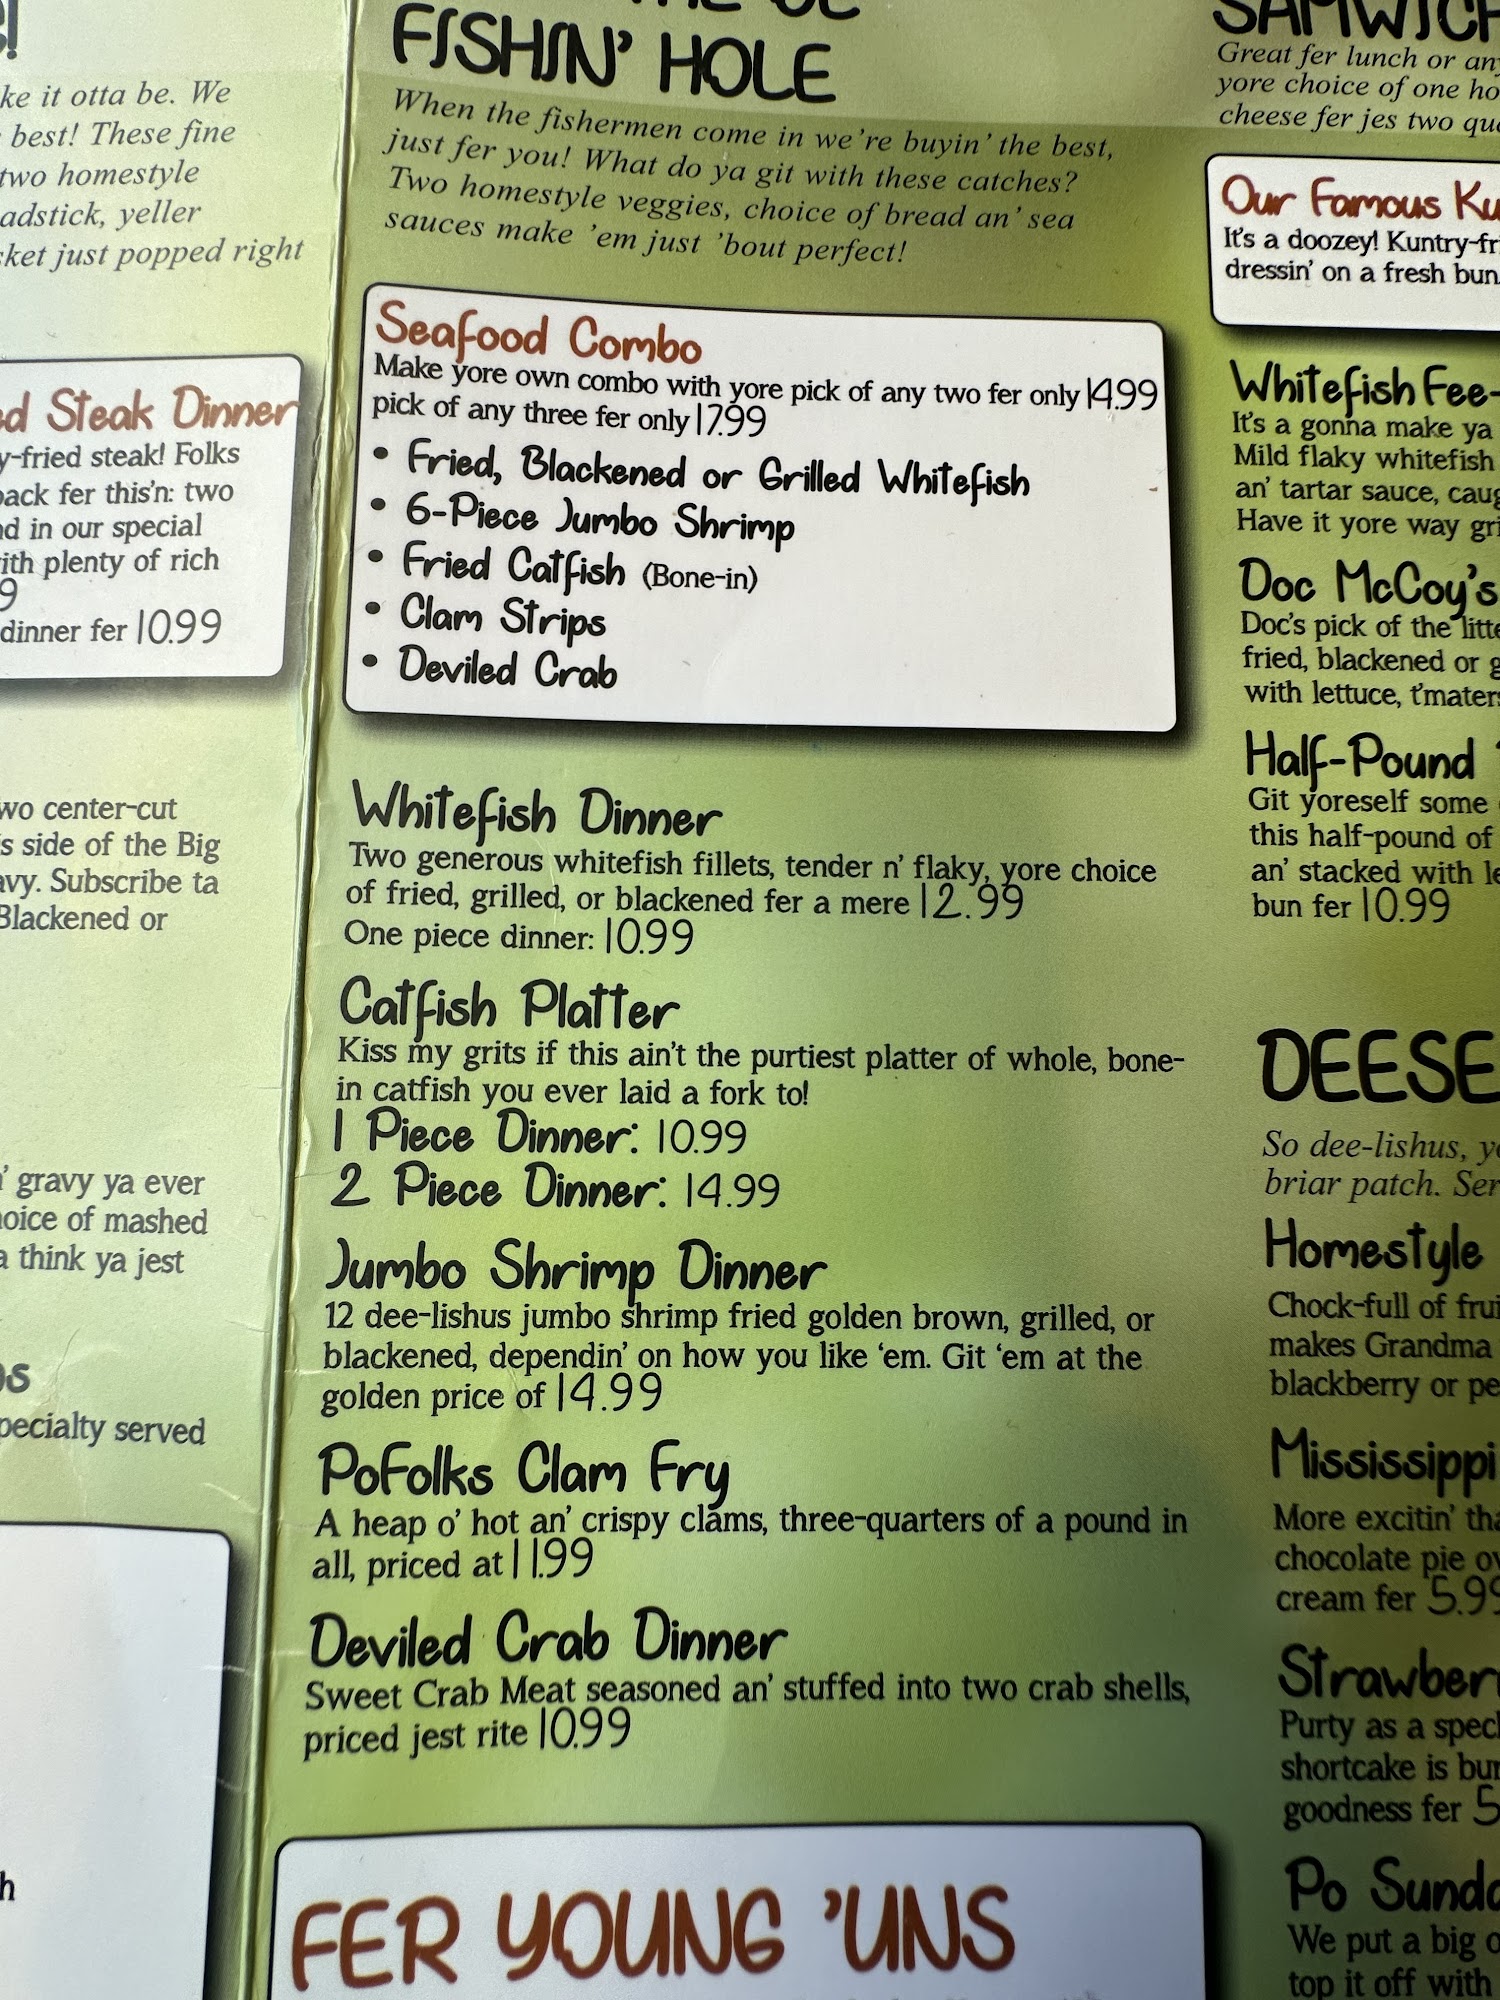 ke it otta be. We
best! These fine
two homestyle
adstick, yeller
ket just popped right
ed Steak Dinner
y-fried steak! Folks
back fer this'n: two
nd in our special
with plenty of rich
9
dinner fer 10.99
two center-cut
s side of the Big
avy. Subscribe ta
Blackened or
n' gravy ya ever
hoice of mashed
a think ya jest
os
pecialty served
h
FISHIN' HOLE
When the fishermen come in we're buyin' the best,
just fer you! What do ya git with these catches?
Two homestyle veggies, choice of bread an' sea
sauces make 'em just 'bout perfect!
Seafood Combo
Make yore own combo with yore pick of any two fer only 14.99
pick of any three fer only 17.99
• Fried, Blackened or Grilled Whitefish
• 6-Piece Jumbo Shrimp
• Fried Catfish (Bone-in)
• Clam Strips
• Deviled Crab
Whitefish Dinner
Two generous whitefish fillets, tender n' flaky, yore choice
of fried, grilled, or blackened fer a mere 12.99
One piece dinner: 10.99
Catfish Platter
Kiss my grits if this ain't the purtiest platter of whole, bone-
in catfish you ever laid a fork to!
1 Piece Dinner: 10.99
2 Piece Dinner: 14.99
Jumbo Shrimp Dinner
12 dee-lishus jumbo shrimp fried golden brown, grilled, or
blackened, dependin' on how you like 'em. Git 'em at the
golden price of 14.99
PoFolks Clam Fry
A heap o' hot an' crispy clams, three-quarters of a pound in
all, priced at 11.99
Deviled Crab Dinner
Sweet Crab Meat seasoned an' stuffed into two crab shells,
priced jest rite 10.99
FER YOUNG 'UNS
SAMWICH
Great fer lunch or any
yore choice of one ho
cheese fer jes two qua
Our Famous Ku
It's a doozey! Kuntry-fri
dressin' on a fresh bun
Whitefish Fee-
It's a gonna make ya
Mild flaky whitefish
an' tartar sauce, caug
Have it yore way gri
Doc McCoy's
Doc's pick of the litte
fried, blackened or g
with lettuce, t'maters
Half-Pound
Git yoreself some
this half-pound of
an' stacked with le
bun fer 10.99
DEESE
So dee-lishus, yo
briar patch. Ser
Homestyle
Chock-full of frui
makes Grandma
blackberry or pe
Mississippi
More excitin' tha
chocolate pie ov
cream fer 5.99
Strawberr
Purty as a speck
shortcake is bur
goodness fer 5
Po Sunda
We put a big o
top it off with